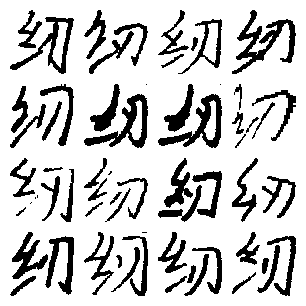 纫纫纫纫
纫纫纫纫
纫纫纫纫
纫纫纫纫